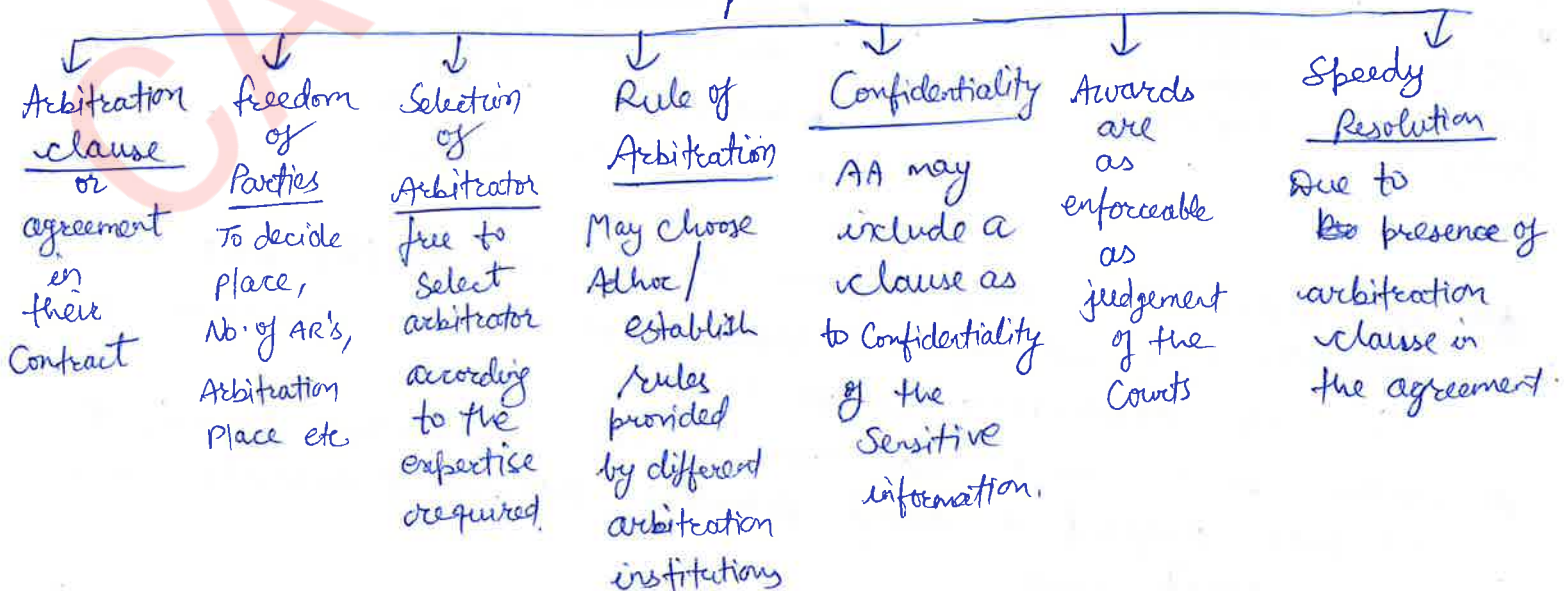 CA
Arbitration
clause
or
agreement
in
their
Contract
freedom
of
Parties
To decide
place,
No. of AR's,
Arbitration
Place etc
Selection
of
Arbitrator
free to
select
arbitrator
according
to the
expertise
required.
Rule of
Arbitration
May choose
Adhoc/
establish
rules
provided
by different
arbitration
institutions
Confidentiality
AA may
include a
clause as
to Confidentiality
of the
Sensitive
information.
Awards
are
as
enforceable
as
judgement
of the
Courts
Speedy
Resolution
Due to
presence of
arbitration
clause in
the agreement.